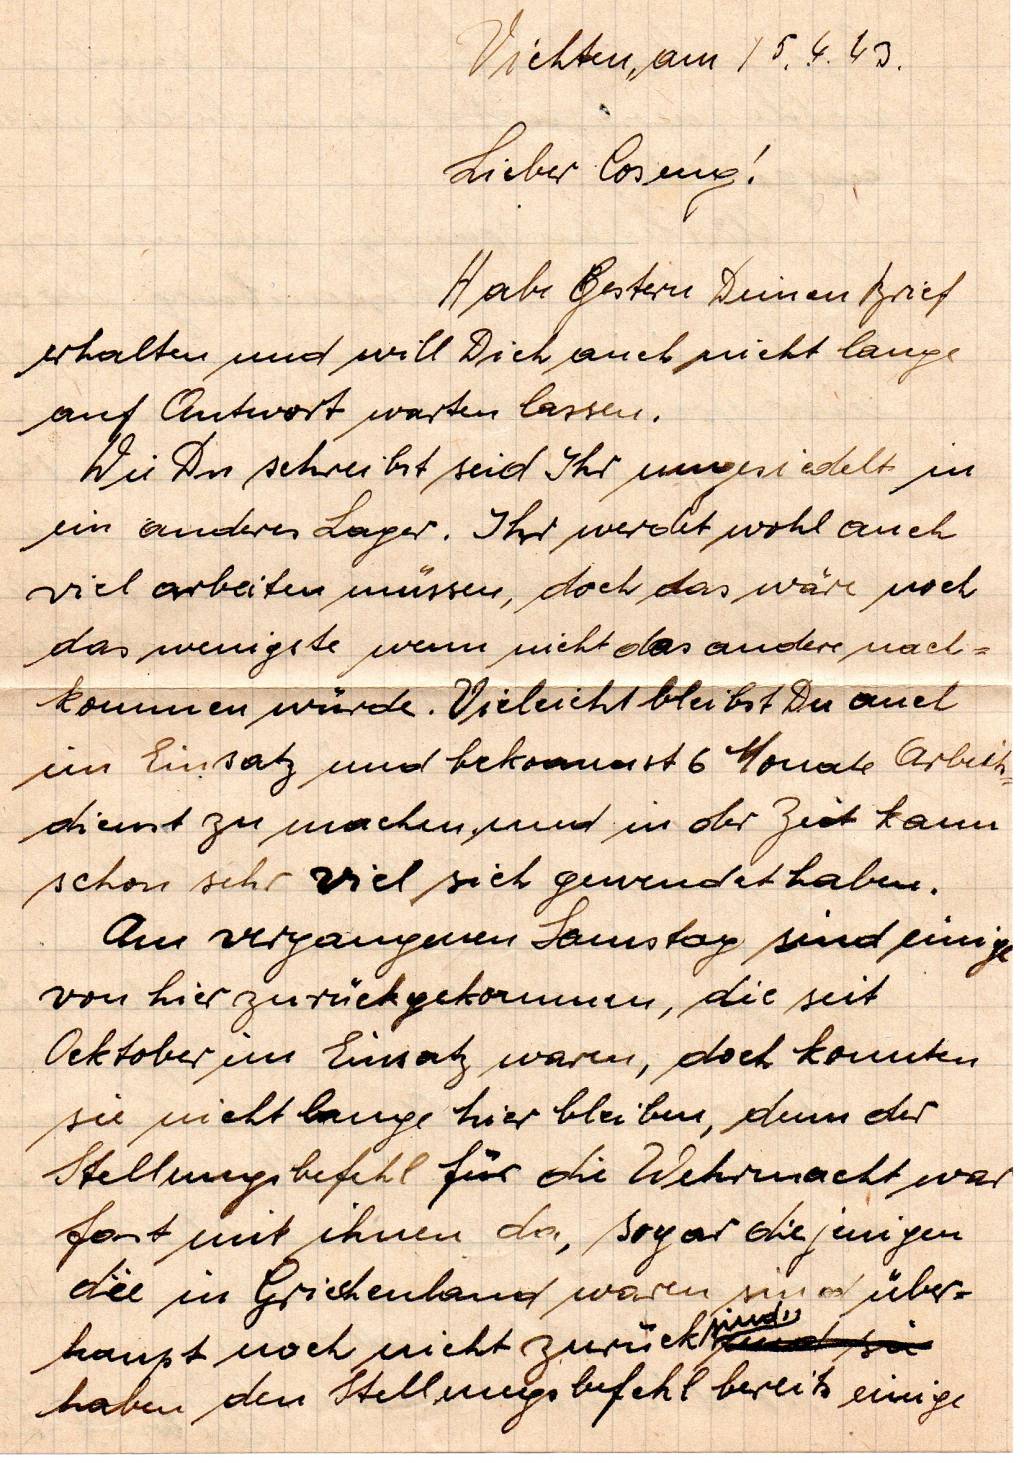 Vichten, am 15.4.43.
Lieber Coseng!
Habe Gestern Deinen Brief
erhalten und will Dich auch nicht lange
auf Antwort warten lassen.
Wie Du schreibst seid Ihr umgesiedelt in
ein anderes Lager. Ihr werdet wohl auch
viel arbeiten müssen, doch das wäre noch
das wenigste wenn nicht das andere nach=
kommen würde. Vieleicht bleibst Du auch
im Einsatz und bekommst 6 Monate Arbeits=
dienst zu machen, und in der Zeit kann
schon sehr viel sich gewendet haben.
Am vergangenen Samstag sind einige
von hier zurückgekommen, die seit
Ocktober im Einsatz waren, doch konnten
sie nicht lange hier bleiben, denn der
Stellungsbefehl für die Wehrmacht war
fast mit ihnen da, sogar diejenigen
die in Griechenland waren sind über=
haupt noch nicht zurück sind, sind sie
haben den Stellungsbefehl bereits einige